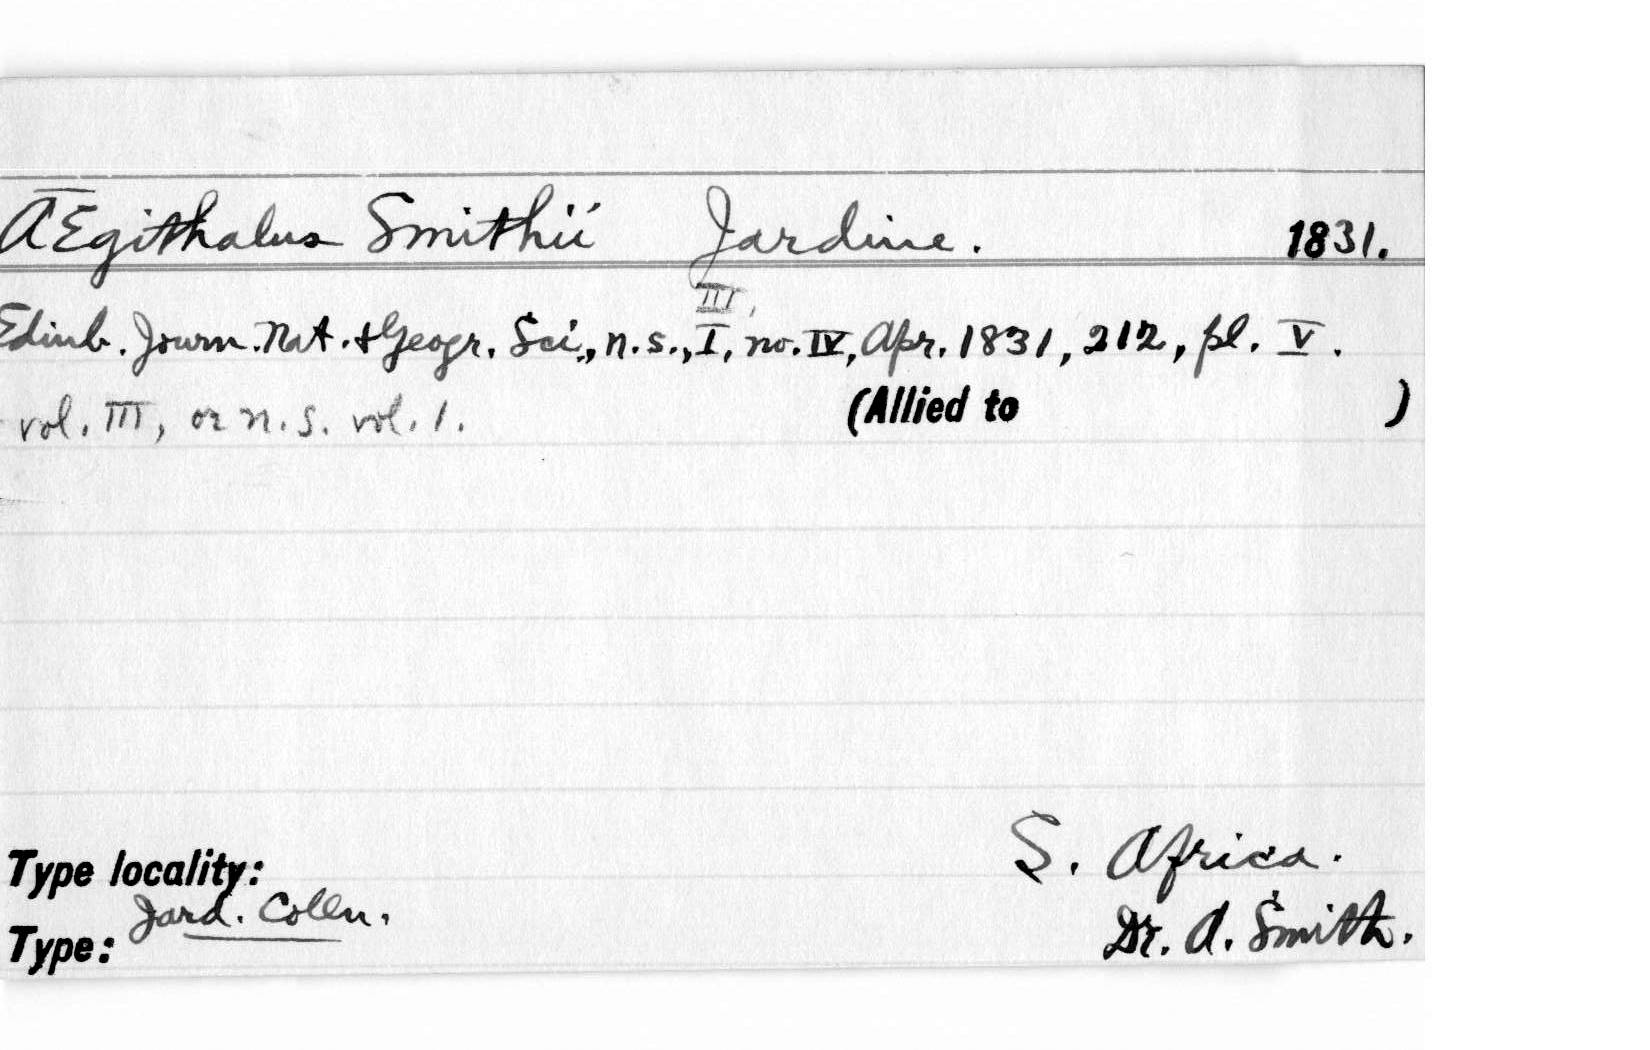 ÆEgithalus Smithii Jardine. 1831.
III,
Edinb. Journ. Nat. & Geogr. Sci., n.s., I, no. IV, Apr. 1831, 212, pl. V.
vol. III, or n.s. vol. 1.
(Allied to )
S. Africa.
Type locality:
Jard. Colln.
Dr. A. Smith.
Type: